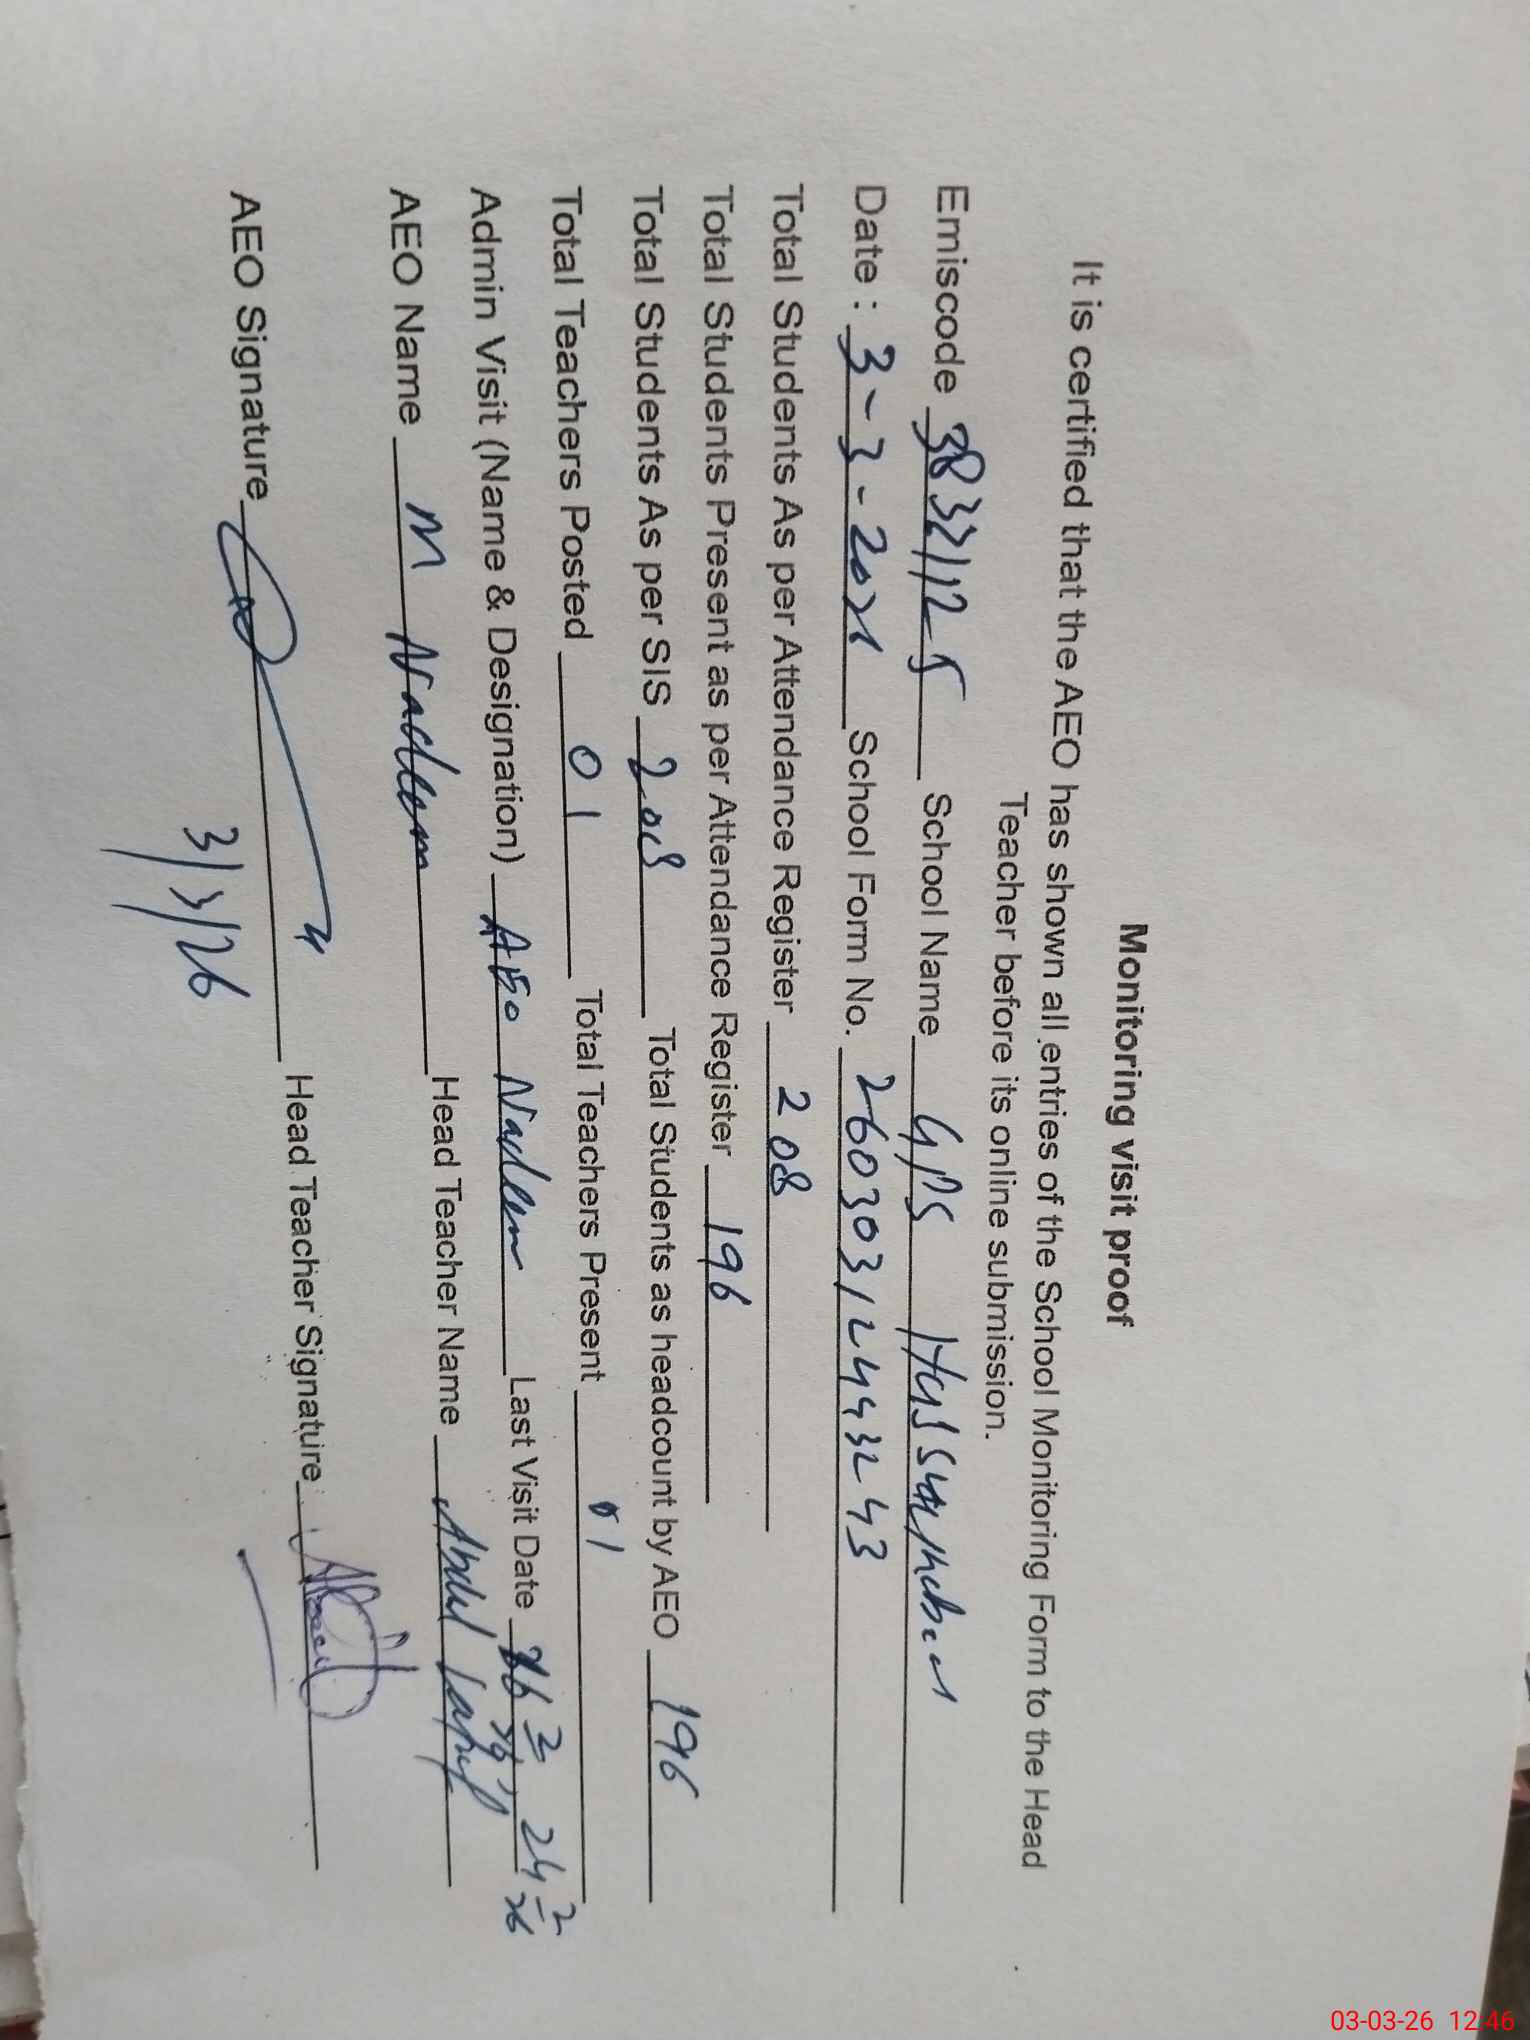 Monitoring visit proof
It is certified that the AEO has shown all entries of the School Monitoring Form to the Head
Teacher before its online submission.
Emiscode 38321125 School Name GPS
Date : 3-3-2026 School Form No. 2603031244932 43
Total Students As per Attendance Register 208
Total Students Present as per Attendance Register 196
Total Students As per SIS 208 Total Students as headcount by AEO 196
Total Teachers Posted 01 Total Teachers Present 01
Admin Visit (Name & Designation) AEO Nadeem Last Visit Date 24 2/26
AEO Name M Nadeem Head Teacher Name Abdul
AEO Signature Head Teacher Signature
3/3/26
03-03-26 12:46